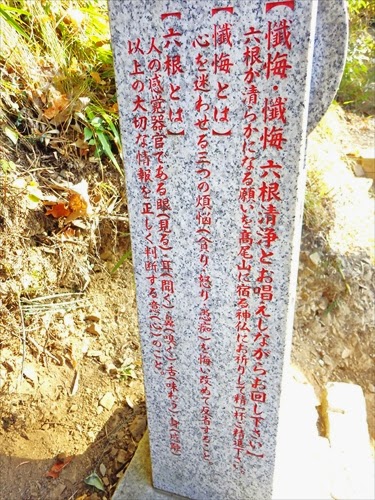 【懺悔・懺悔 六根清浄とお唱えしながらお回し下さい】
六根が清らかになる願いを高尾山に宿る神仏にお祈りして精一杯ご精進下さい。
【懺悔とは】
心を迷わせる三つの煩悩(貪り・怒り・愚痴)を悔い改めて反省すること。
【六根とは】
人の感覚器官である眼(見る)耳(聞く)鼻(嗅ぐ)舌(味わう)身(感触)
以上の大切な情報を正しく判断する意(心)のこと。